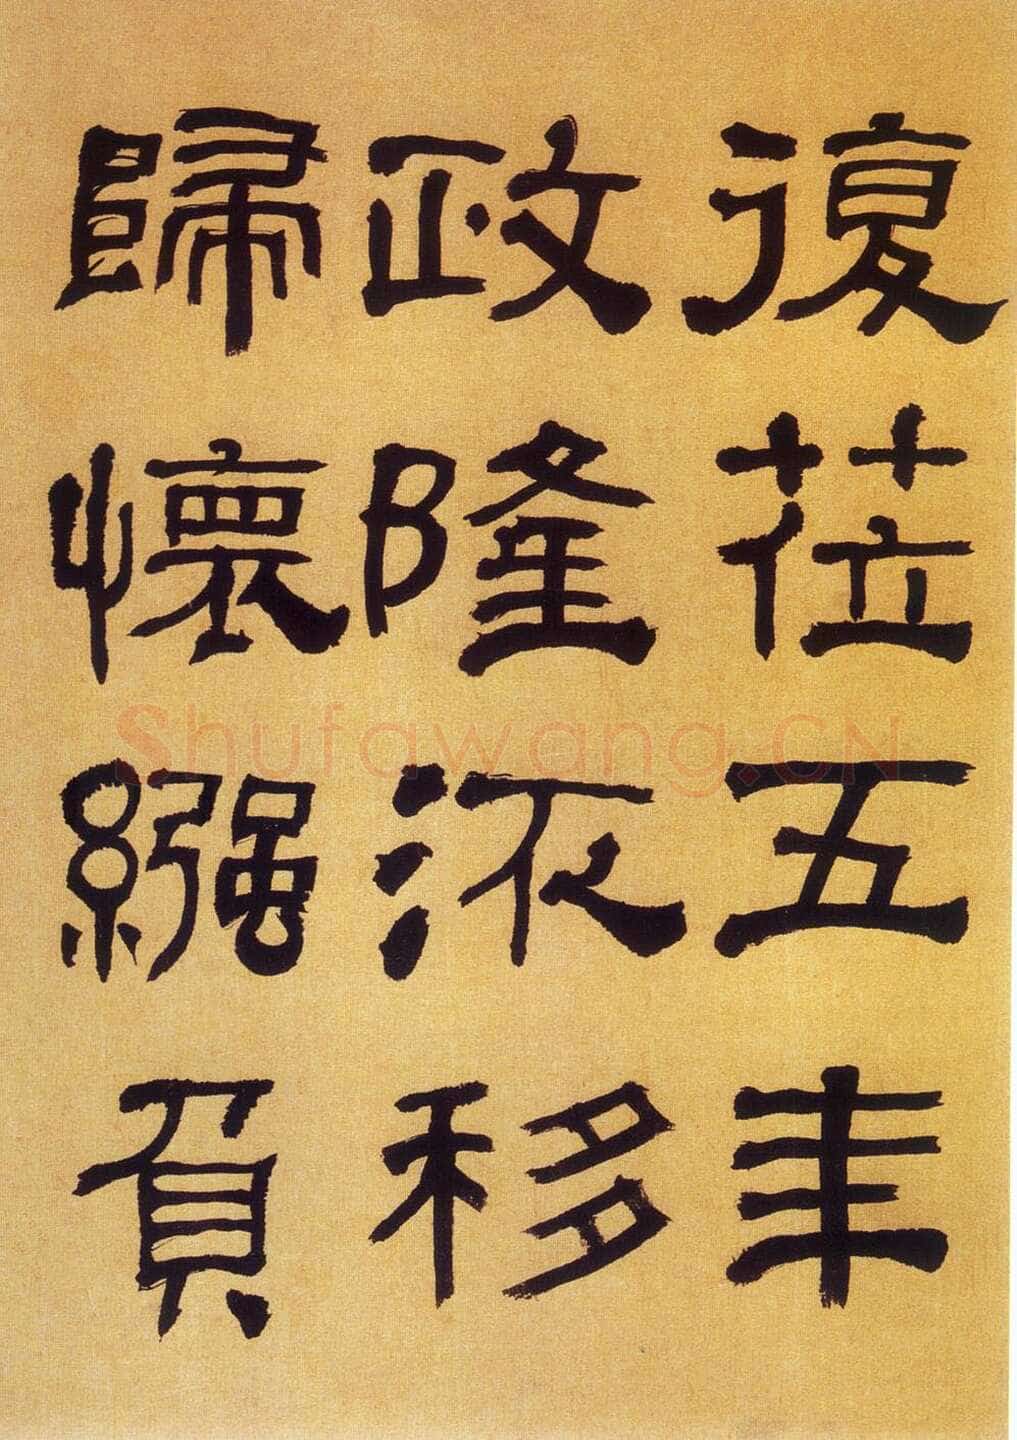 復莅五年
政隆移
歸懷繈負
Shufawang.CN